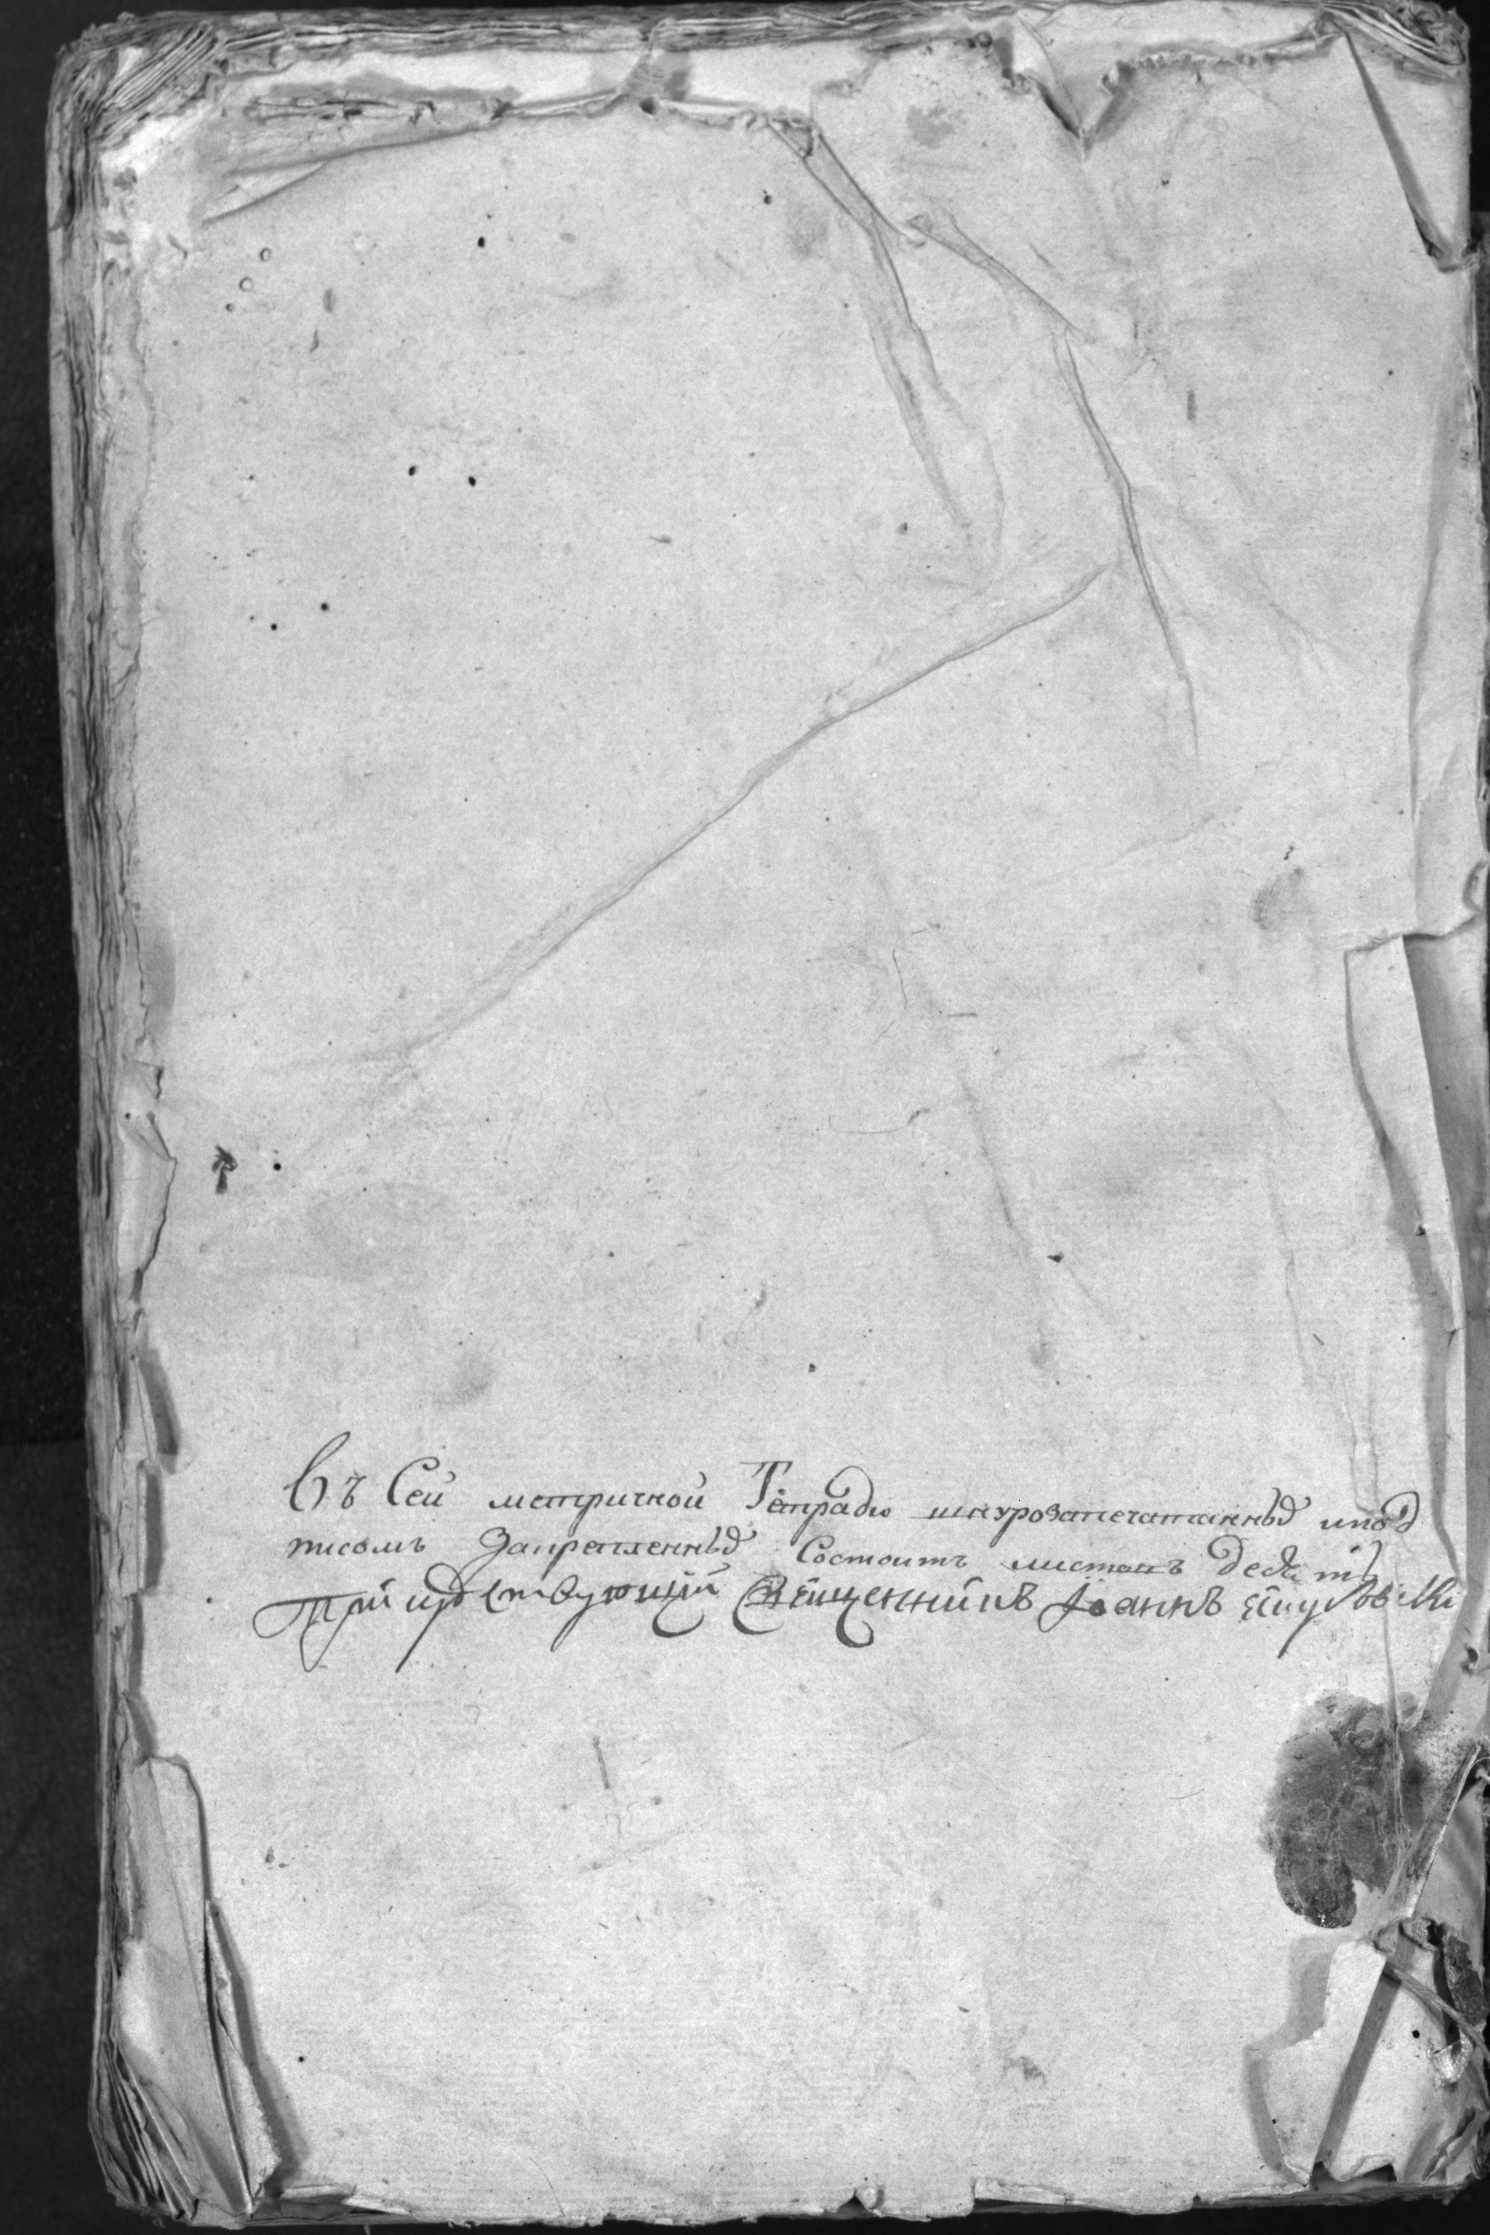 Въ Сей метричной Тетради шнурозапечатанныхъ и под
писомъ Закрепленныхъ Состоитъ листовъ десять
Присудствующій Священникъ Іоаннъ